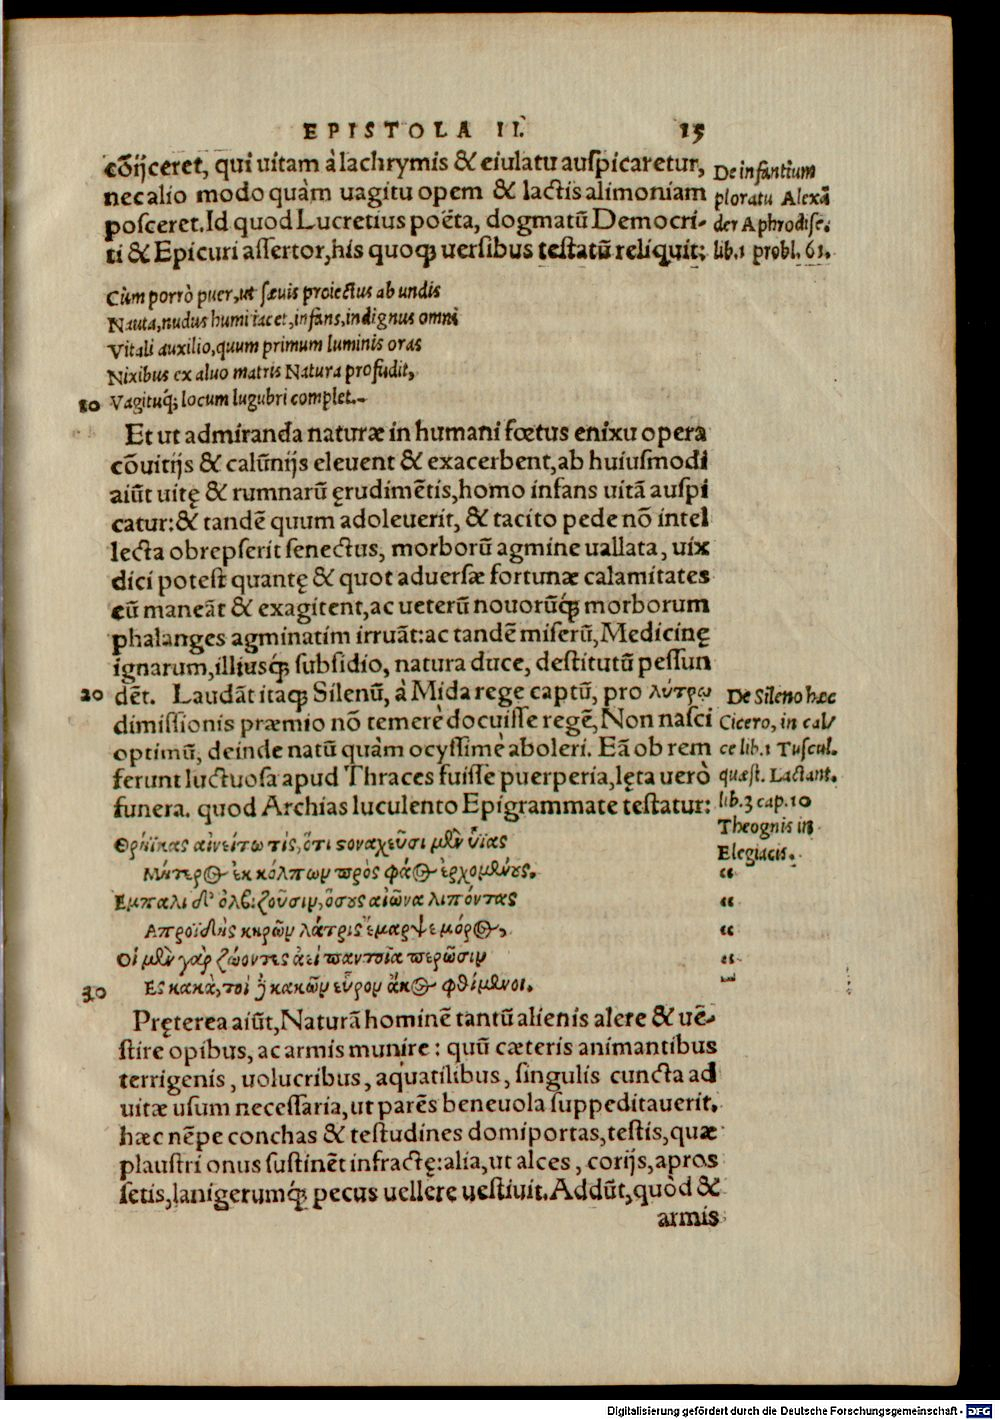 EPISTOLA II. 15
cõijceret, qui uitam à lachrymis & eiulatu auspicaretur,
nec alio modo quàm uagitu opem & lactis alimoniam
posceret. Id quod Lucretius poëta, dogmatũ Democri-
ti & Epicuri assertor, his quoq; uersibus testatũ reliquit:
De infantium
ploratu Alexã
der Aphrodise.
lib.1 probl. 61.
Cùm porrò puer, ut sæuis proiectus ab undis
Nauta, nudus humi iacet, infans, indignus omni
Vitali auxilio, quum primum luminis oras
Nixibus ex aluo matris Natura profudit,
10 Vagituq́; locum lugubri complet.-
Et ut admiranda naturæ in humani fœtus enixu opera
cõuitijs & calũnijs eleuent & exacerbent, ab huiusmodi
aiũt uitę & rumnarũ ęrudimẽtis, homo infans uitã auspi
catur: & tandẽ quum adoleuerit, & tacito pede nõ intel
lecta obrepserit senectus, morborũ agmine uallata, uix
dici potest quantę & quot aduersæ fortunæ calamitates
eũ maneãt & exagitent, ac ueterũ nouorũq́; morborum
phalanges agminatim irruãt: ac tandẽ miserũ, Medicinę
ignarum, illiusq́; subsidio, natura duce, destitutũ pessun
20 dẽt. Laudãt itaq; Silenũ, à Mida rege captũ, pro λύτρῳ
dimissionis præmio nõ temerè docuisse regẽ, Non nasci
optimũ, deinde natũ quàm ocyssimè aboleri. Eã ob rem
ferunt luctuosa apud Thraces fuisse puerperia, lęta uerò
funera. quod Archias luculento Epigrammate testatur:
De Sileno hæc
Cicero, in cal/
ce lib.1 Tuscul.
quæst. Lactant.
lib.3 cap.10
Theognis in
Elegiacis.
Θρήϊκας αἰνείτω τὶς, ὅτι στοναχεῦσι μὲν υἷας
Μητέρος ἐκ κόλπων πρὸς φάος ἐρχομένους.
Εμπαλι δ' ὀλβίζουσιν, ὅσους αἰῶνα λιπόντας
Απροϊδὴς κηρῶν λάτρις ἔμαρψε μόρος,
Οἱ μὲν γὰρ ζώοντες ἀεὶ παντοῖα περῶσιν
30 Ες κακὰ, τοὶ ἢ κακῶν εὗρον ἄκος φθίμενοι.
“
“
“
“
Pręterea aiũt, Naturã hominẽ tantũ alienis alere & uẽ-
stire opibus, ac armis munire: quũ cæteris animantibus
terrigenis, uolucribus, aquatilibus, singulis cuncta ad
uitæ usum necessaria, ut parẽs beneuola suppeditauerit.
hæc nẽpe conchas & testudines domiportas, testis, quæ
plaustri onus sustinẽt infractę: alia, ut alces, corijs, apros
setis, lanigerumq́; pecus uellere uestiuit. Addũt, quòd &
armis
Digitalisierung gefördert durch die Deutsche Forschungsgemeinschaft - DFG